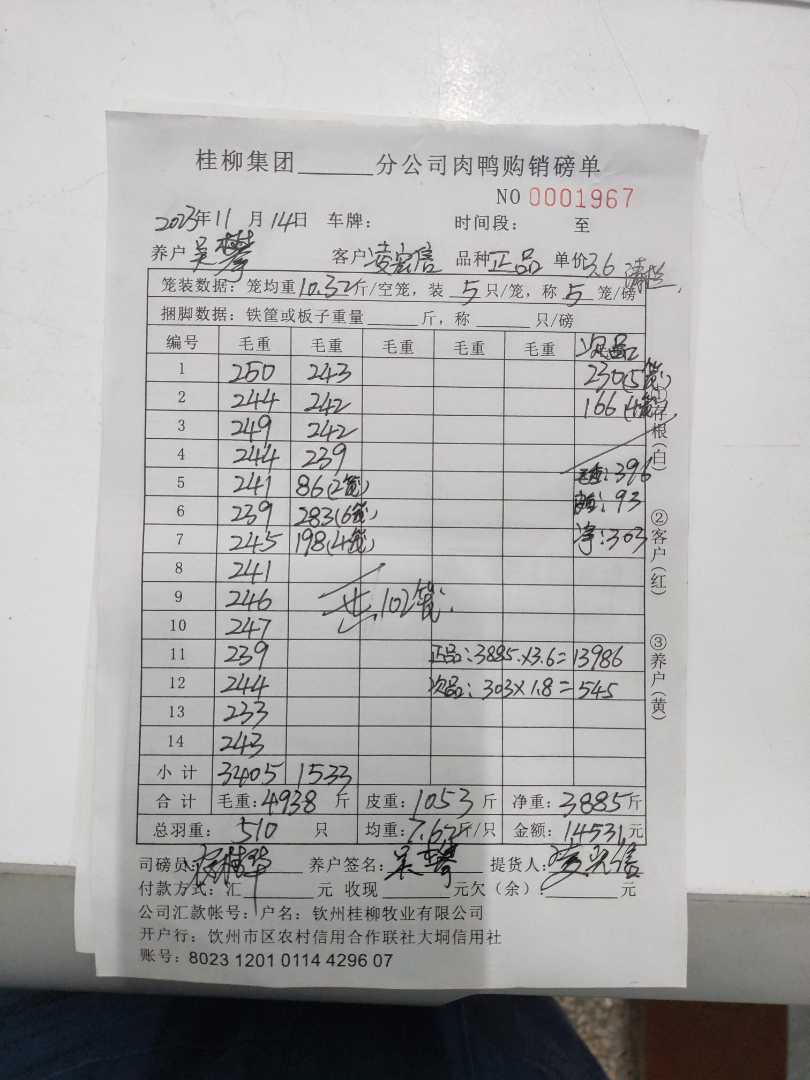 桂柳集团______分公司肉鸭购销磅单
NO 0001967
2023年11月14日 车牌: 时间段: 至
养户 吴攀 客户 凌宏信 品种 正品 单价 3.6
笼装数据: 笼均重10.32斤/空笼, 装 5 只/笼, 称 5 笼/磅
捆脚数据: 铁筐或板子重量______斤, 称______只/磅
编号 毛重 毛重 毛重 毛重 毛重 次品
1 250 243 230(5笼)
2 244 242 166(4笼)
3 249 242
4 244 239
5 241 86(2笼) 毛重:396
6 239 283(6笼) 皮重:93
7 245 198(4笼) 净:303
8 241
9 246 共102笼.
10 247
11 239 正品:3885×3.6=13986
12 244 次品:303×1.8=545
13 233
14 243
小计 3405 1533
合计 毛重:4938斤 皮重:1053斤 净重:3885斤
总羽重: 510 只 均重:7.62斤/只 金额:14531元
司磅员: 养户签名:吴攀 提货人:凌宏信
付款方式:汇______元 收现______元欠(余):______元
公司汇款帐号: 户名: 钦州桂柳牧业有限公司
开户行: 饮州市区农村信用合作联社大垌信用社
账号: 8023 1201 0114 4296 07
①存根(白)
②客户(红)
③养户(黄)